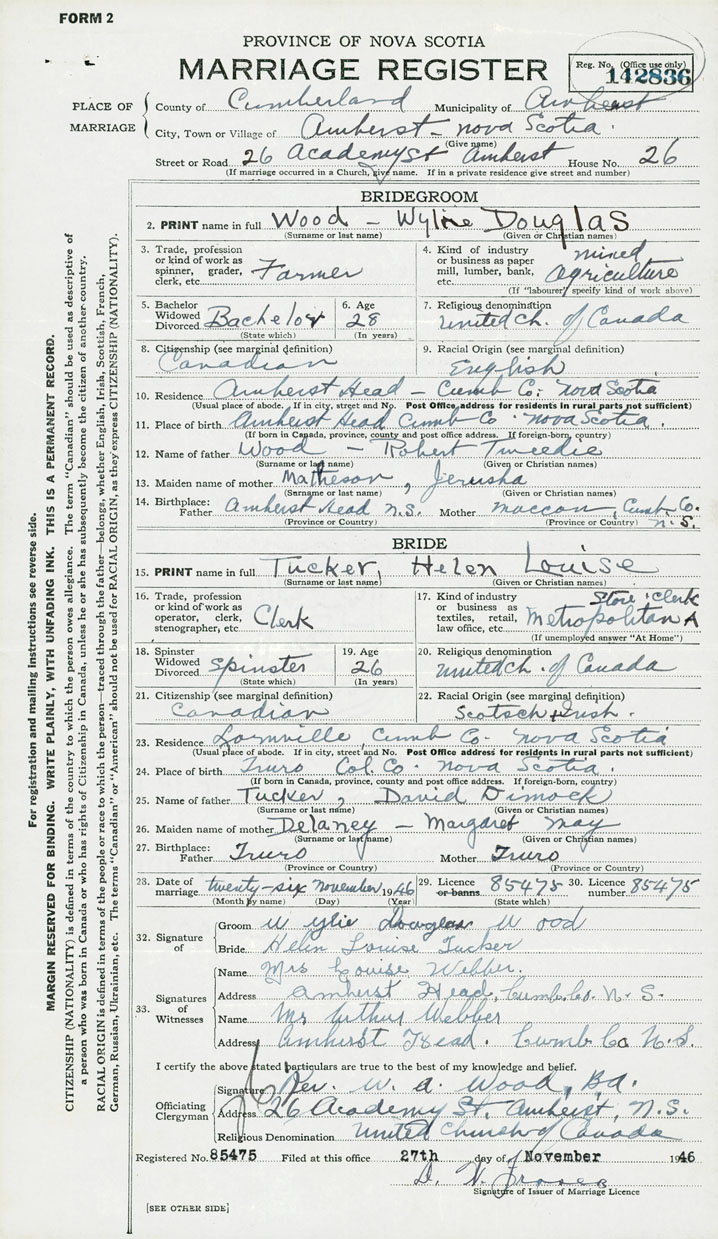 FORM 2
PROVINCE OF NOVA SCOTIA
MARRIAGE REGISTER
Reg. No. (Office use only)
142836
PLACE OF MARRIAGE
County of Cumberland Municipality of Amherst
City, Town or Village of Amherst - Nova Scotia.
(Give name)
Street or Road 26 Academy St Amherst House No. 26
(If marriage occurred in a Church, give name. If in a private residence give street and number)
BRIDEGROOM
2. PRINT name in full Wood - Wylie Douglas
(Surname or last name) (Given or Christian names)
3. Trade, profession or kind of work as spinner, grader, clerk, etc. Farmer
4. Kind of industry or business as paper mill, lumber, bank, etc. mixed Agriculture
(If "labourer" specify kind of work above)
5. Bachelor Widowed Divorced Bachelor
(State which)
6. Age 28
(In years)
7. Religious denomination
United Ch. of Canada
8. Citizenship (see marginal definition)
Canadian
9. Racial Origin (see marginal definition)
English
10. Residence Amherst Head - Cumb Co: Nova Scotia
(Usual place of abode. If in city, street and No. Post Office address for residents in rural parts not sufficient)
11. Place of birth Amherst Head Cumb Co. Nova Scotia.
(If born in Canada, province, county and post office address. If foreign-born, country)
12. Name of father Wood - Robert Tweedie
(Surname or last name) (Given or Christian names)
13. Maiden name of mother Matheson, Jerusha
(Surname or last name) (Given or Christian names)
14. Birthplace: Father Amherst Head N.S. Mother Maccan, Cumb Co. N.S.
(Province or Country) (Province or Country)
BRIDE
15. PRINT name in full Tucker, Helen Louise
(Surname or last name) (Given or Christian names)
16. Trade, profession or kind of work as operator, clerk, stenographer, etc. Clerk
17. Kind of industry or business as textiles, retail, law office, etc. Store clerk Metropolitan A
(If unemployed answer "At Home")
18. Spinster Widowed Divorced Spinster
(State which)
19. Age 26
(In years)
20. Religious denomination
United Ch. of Canada
21. Citizenship (see marginal definition)
Canadian
22. Racial Origin (see marginal definition)
Scotsch + Irish.
23. Residence Lornville, Cumb Co. Nova Scotia
(Usual place of abode. If in city, street and No. Post Office address for residents in rural parts not sufficient)
24. Place of birth Truro Col. Co. Nova Scotia.
(If born in Canada, province, county and post office address. If foreign-born, country)
25. Name of father Tucker, David Dimock
(Surname or last name) (Given or Christian names)
26. Maiden name of mother Delaney - Margaret May
(Surname or last name) (Given or Christian names)
27. Birthplace: Father Truro Mother Truro
(Province or Country) (Province or Country)
28. Date of marriage twenty-six November 1946
(Month by name) (Day) (Year)
29. Licence or banns 85475
(State which)
30. Licence number 85475
32. Signature of
Groom Wylie Douglas Wood
Bride Helen Louise Tucker
33. Signatures of Witnesses
Name Mrs Louise Webber.
Address Amherst Head, Cumb. Co. N. S.
Name Mr Arthur Webber
Address Amherst Head. Cumb Co N.S.
I certify the above stated particulars are true to the best of my knowledge and belief.
Officiating Clergyman
Signature Rev. W. A. Wood, B.A.
Address 26 Academy St. Amherst, N.S.
Religious Denomination United Church of Canada
Registered No. 85475 Filed at this office 27th day of November 1946
Signature of Issuer of Marriage Licence
[SEE OTHER SIDE]
For registration and mailing instructions see reverse side.
MARGIN RESERVED FOR BINDING. WRITE PLAINLY, WITH UNFADING INK. THIS IS A PERMANENT RECORD.
CITIZENSHIP (NATIONALITY) is defined in terms of the country to which the person owes allegiance. The term "Canadian" should be used as descriptive of
a person who was born in Canada or who has rights of Citizenship in Canada, unless he or she has subsequently become the citizen of another country.
RACIAL ORIGIN is defined in terms of the people or race to which the person—traced through the father—belongs, whether English, Irish, Scottish, French,
German, Russian, Ukrainian, etc. The terms "Canadian" or "American" should not be used for RACIAL ORIGIN, as they express CITIZENSHIP (NATIONALITY).